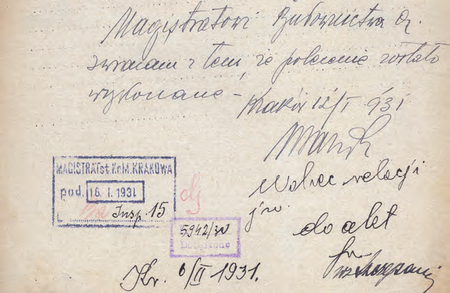 Magistratowi Budownictwa
zwracam z tem, że polecenie zostało
wykonane –
Kraków 12/I 931
MAGISTRAT st. kr. M. KRAKOWA
pad. 16. I. 1931
Insp. 15
5942/30
Wobec relacji
jw.
do akt
Kr. 6/II 1931.